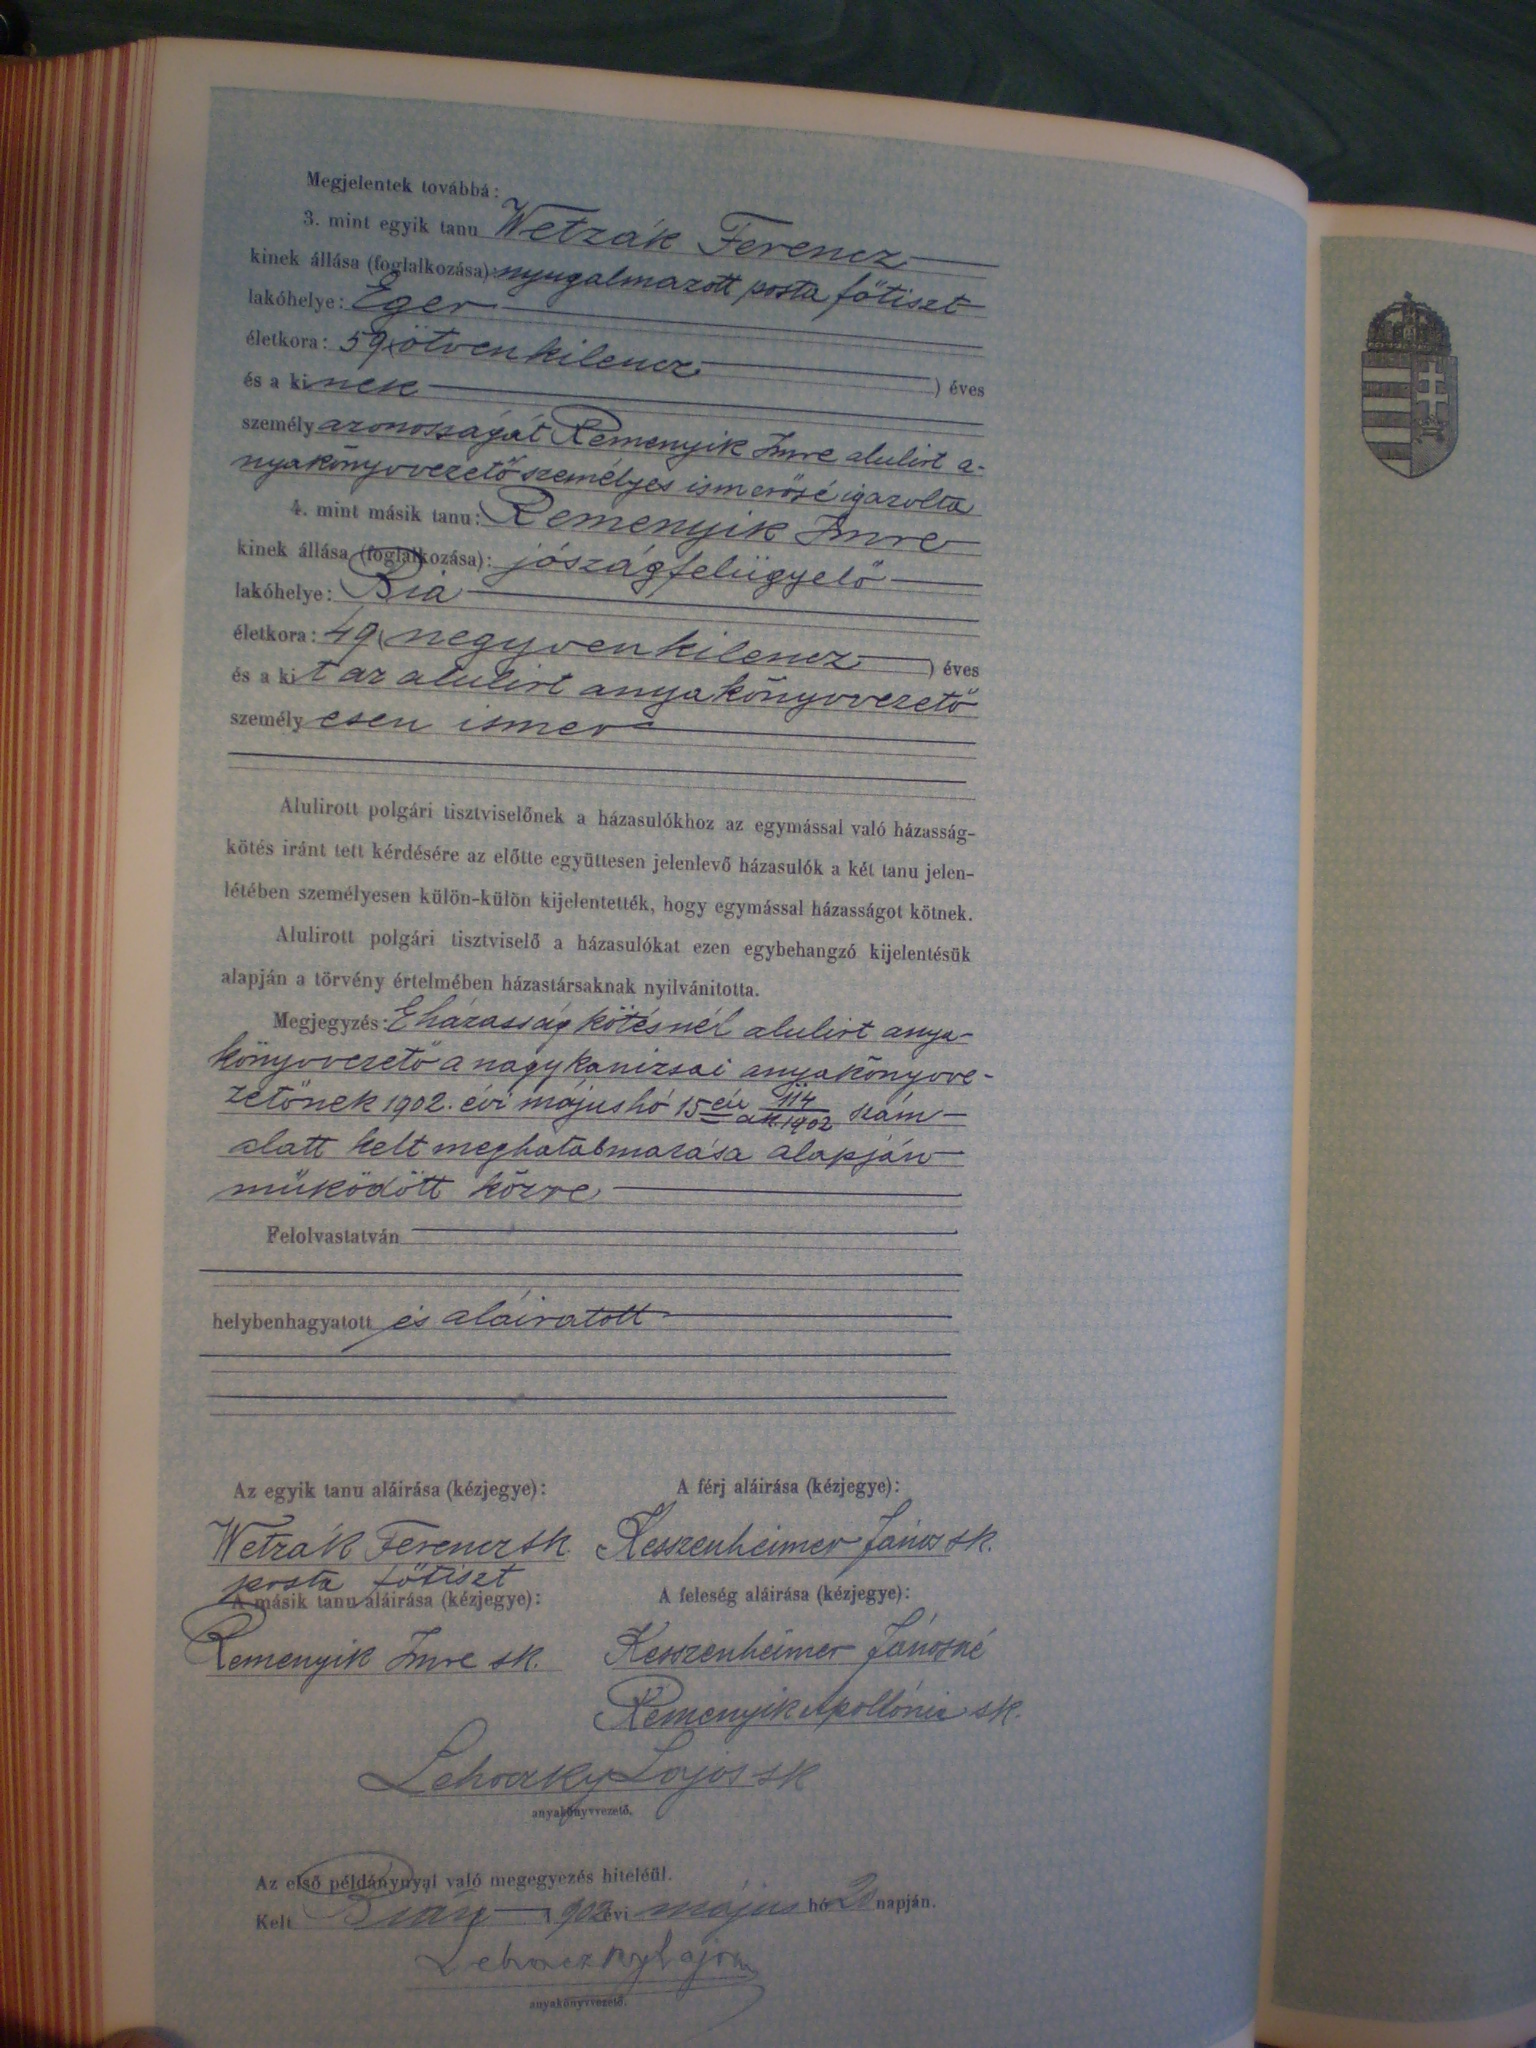 Megjelentek továbbá:
3. mint egyik tanu Wetzák Ferencz
kinek állása (foglalkozása): nyugalmazott posta főtiszt
lakóhelye: Eger
életkora: 59 (ötvenkilencz ) éves
és a kinek
személyazonosságát Remenyik Imre alulirt a-
nyakönyvvezető személyes ismerőse igazolta
4. mint másik tanu: Remenyik Imre
kinek állása (foglalkozása): jószágfelügyelő
lakóhelye: Bia
életkora: 49 (negyvenkilencz ) éves
és a kit az alulirt anyakönyvvezető
személyesen ismer
Alulirott polgári tisztviselőnek a házasulókhoz az egymással való házasság-
kötés iránt tett kérdésére az előtte együttesen jelenlevő házasulók a két tanu jelen-
létében személyesen külön-külön kijelentették, hogy egymással házasságot kötnek.
Alulirott polgári tisztviselő a házasulókat ezen egybehangzó kijelentésük
alapján a törvény értelmében házastársaknak nyilvánitotta.
Megjegyzés: E házasság kötésnél alulirt anya-
könyvvezető a nagykanizsai anyakönyvve-
zetőnek 1902. évi május hó 15én 114/ak.1902 szám
alatt kelt meghatalmazása alapján
működött közre
Felolvastatván
helybenhagyatott és aláiratott
Az egyik tanu aláirása (kézjegye): A férj aláirása (kézjegye):
Wetzák Ferencz sk. Kesszenheimer János sk.
posta főtiszt
A másik tanu aláirása (kézjegye): A feleség aláirása (kézjegye):
Remenyik Imre sk. Kesszenheimer Jánosné
Remenyik Apollónia sk.
Lehoczky Lajos sk
anyakönyvvezető.
Az első példánynyal való megegyezés hiteléül.
Kelt Bián 1902 évi május hó 20 napján.
Lehoczky Lajos
anyakönyvvezető.